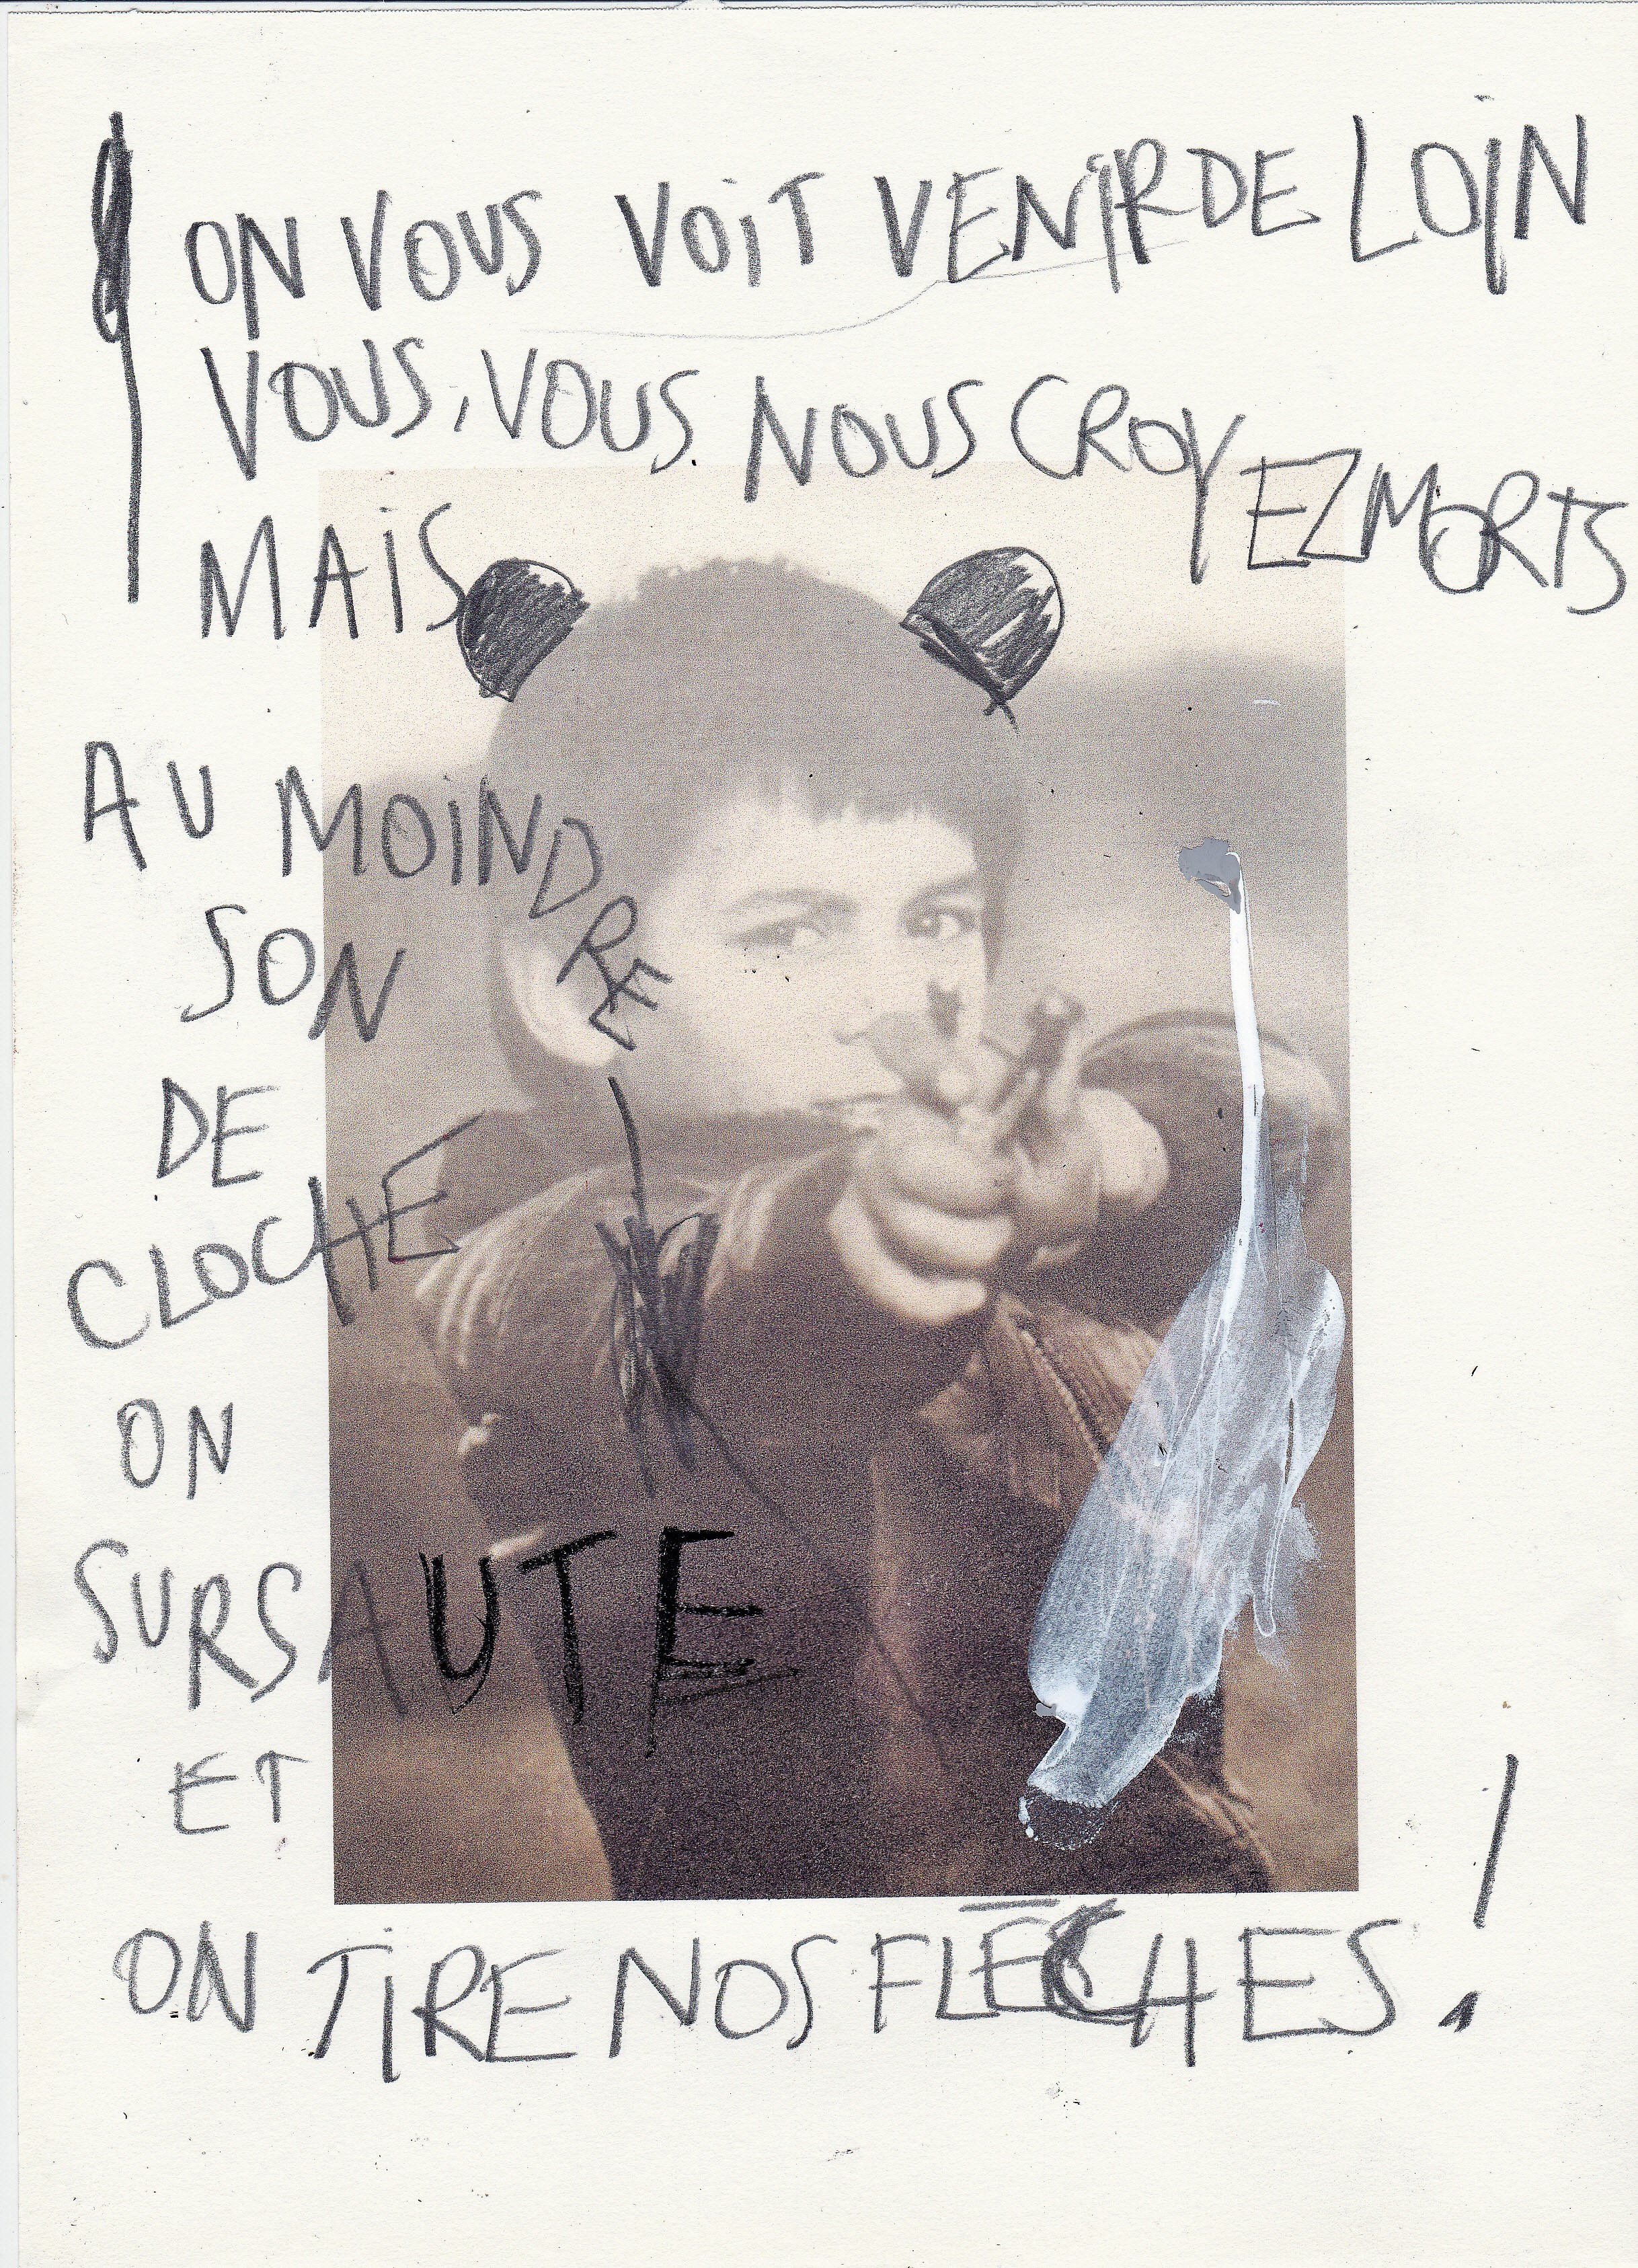 ON VOUS VOIT VENIR DE LOIN
VOUS, VOUS NOUS CROYEZ MORTS
MAIS
AU MOINDRE
SON
DE
CLOCHE
ON
SURSAUTE
ET
ON TIRE NOS FLÈCHES !